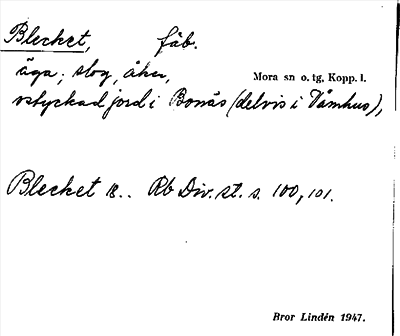 Blecket, fäb.
äga; slog, åker,
Mora sn o. tg, Kopp. l.
ostyckad jord i Bonäs (delvis i Våmhus),
Blecket 18.. Rb Div. st. s. 100, 101.
Bror Lindén 1947.